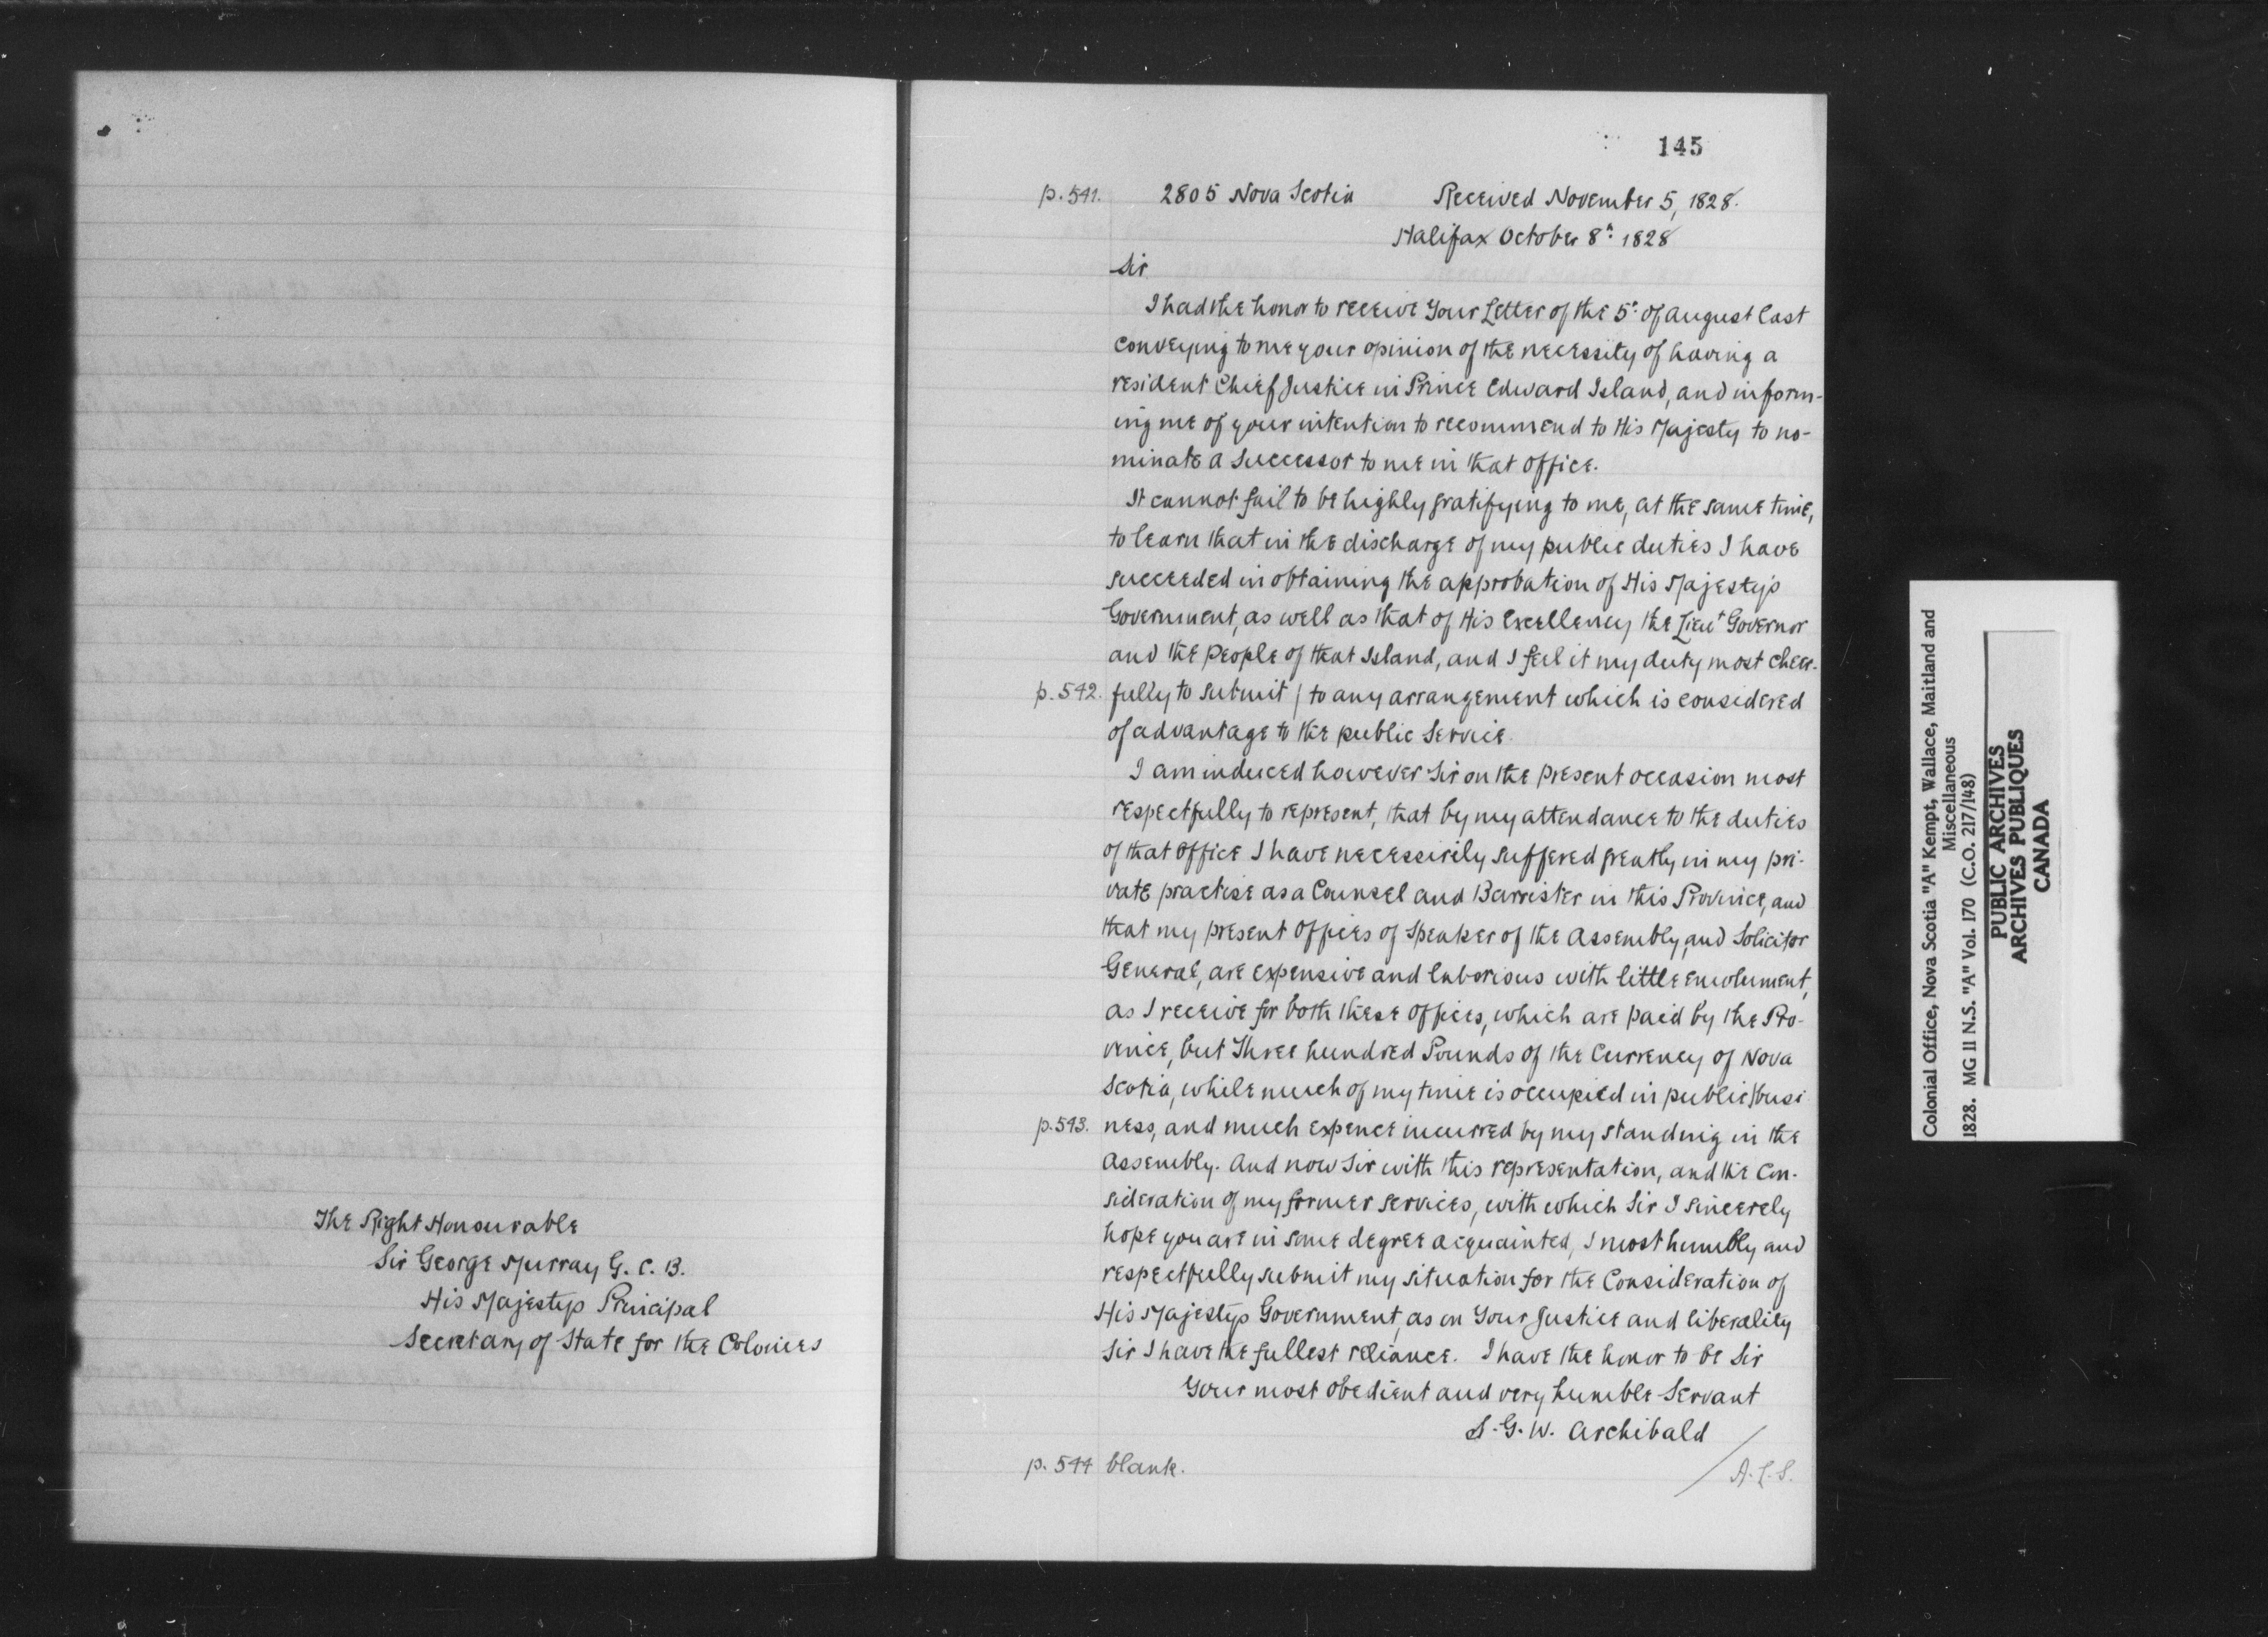 The Right Honourable
Sir George Murray G. C. B.
His Majestys Principal
Secretary of State for the Colonies
145
p. 541. 2805 Nova Scotia Received November 5, 1828.
Halifax October 8th 1828
Sir
I had the honor to receive Your Letter of the 5th of august last
conveying to me your opinion of the necessity of having a
resident Chief Justice in Prince Edward Island, and inform-
ing me of your intention to recommend to His Majesty to no-
minate a successor to me in that office.
It cannot fail to be highly gratifying to me, at the same time,
to learn that in the discharge of my public duties I have
succeeded in obtaining the approbation of His Majesty's
Government, as well as that of His Excellency the Lieut Governor
and the people of that Island, and I feel it my duty most cheer-
p. 542. fully to submit / to any arrangement which is considered
of advantage to the public service.
I am induced however Sir on the present occasion most
respectfully to represent, that by my attendance to the duties
of that office I have necessirily suffered greatly in my pri-
vate practise as a Counsel and Barrister in this Province, and
that my present offices of Speaker of the Assembly, and Solicitor
General, are expensive and laborious with little emolument,
as I receive for both these offices, which are paid by the Pro-
vince, but Three hundred Pounds of the Currency of Nova
Scotia, while much of my time is occupied in public / busi
p. 543. ness, and much expence incurred by my standing in the
Assembly. And now Sir with this representation, and the con-
sideration of my former services, with which Sir I sincerely
hope you are in some degree acquainted, I most humbly and
respectfully submit my situation for the Consideration of
His Majestys Government, as on Your Justice and liberality
Sir I have the fullest reliance. I have the honor to be Sir
Your most obedient and very humble Servant
S. G. W. Archibald
p. 544 blank. / A.L.S.
Colonial Office, Nova Scotia "A" Kempt, Wallace, Maitland and
Miscellaneous
1828. MG 11 N.S. "A" Vol. 170 (C.O. 217/148)
PUBLIC ARCHIVES
ARCHIVES PUBLIQUES
CANADA